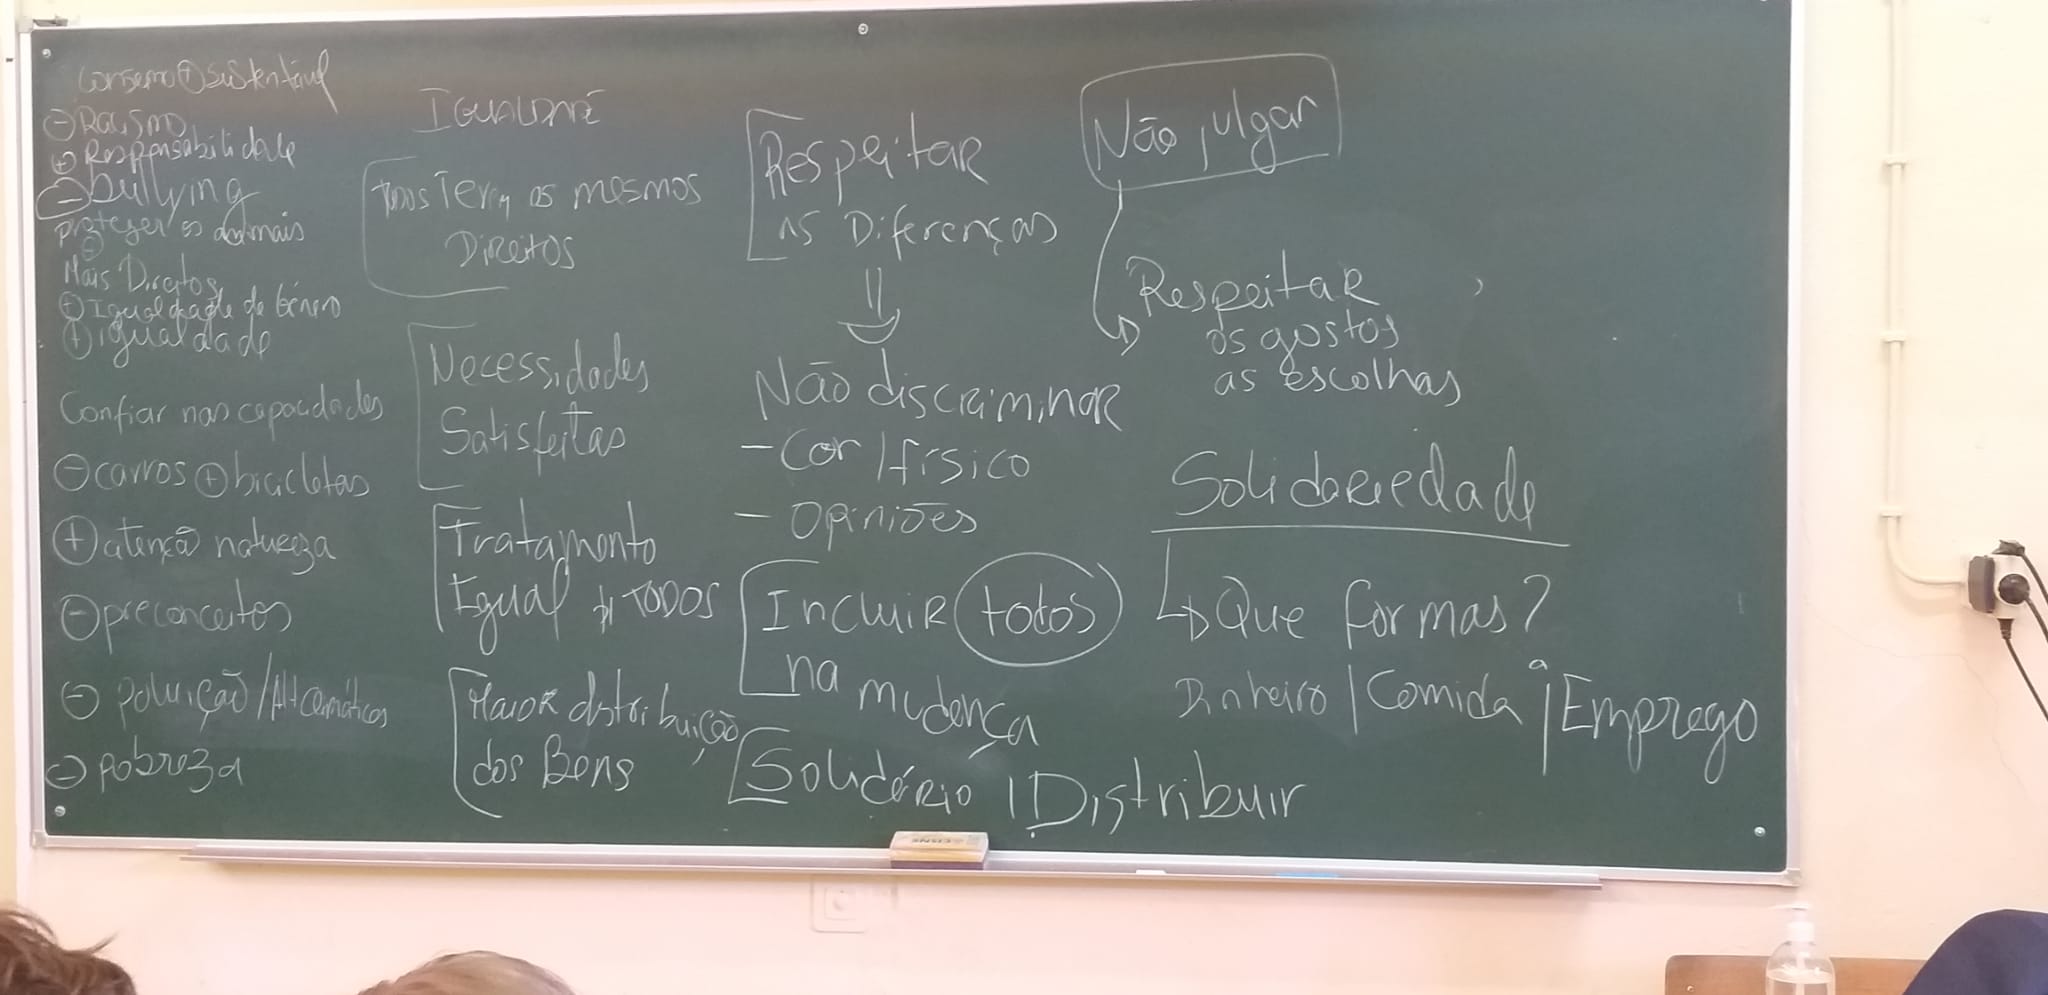 Consumo + sustentável
- Racismo
+ Responsabilidade
- bullying
proteger os animais
+
Mais Direitos
+ Igualdade de Género
+ igualdade
Confiar nas capacidades
- carros + bicicletas
+ atenção natureza
- preconceitos
- poluição / Alt climáticas
- pobreza
IGUALDADE
Todos Terem os mesmos
Direitos
Necessidades
Satisfeitas
Tratamento
Igual p/ TODOS
Maior distribuição
dos Bens
Respeitar
as Diferenças
Não discriminar
- Cor / físico
- Opiniões
Incluir todos
na mudança
Solidário | Distribuir
Não julgar
Respeitar
os gostos
as escolhas
Solidariedade
Que formas?
Dinheiro | Comida | Emprego